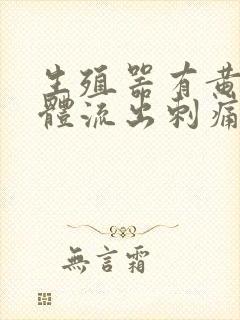 生殖器有黄
體流出刺痛
無言霜